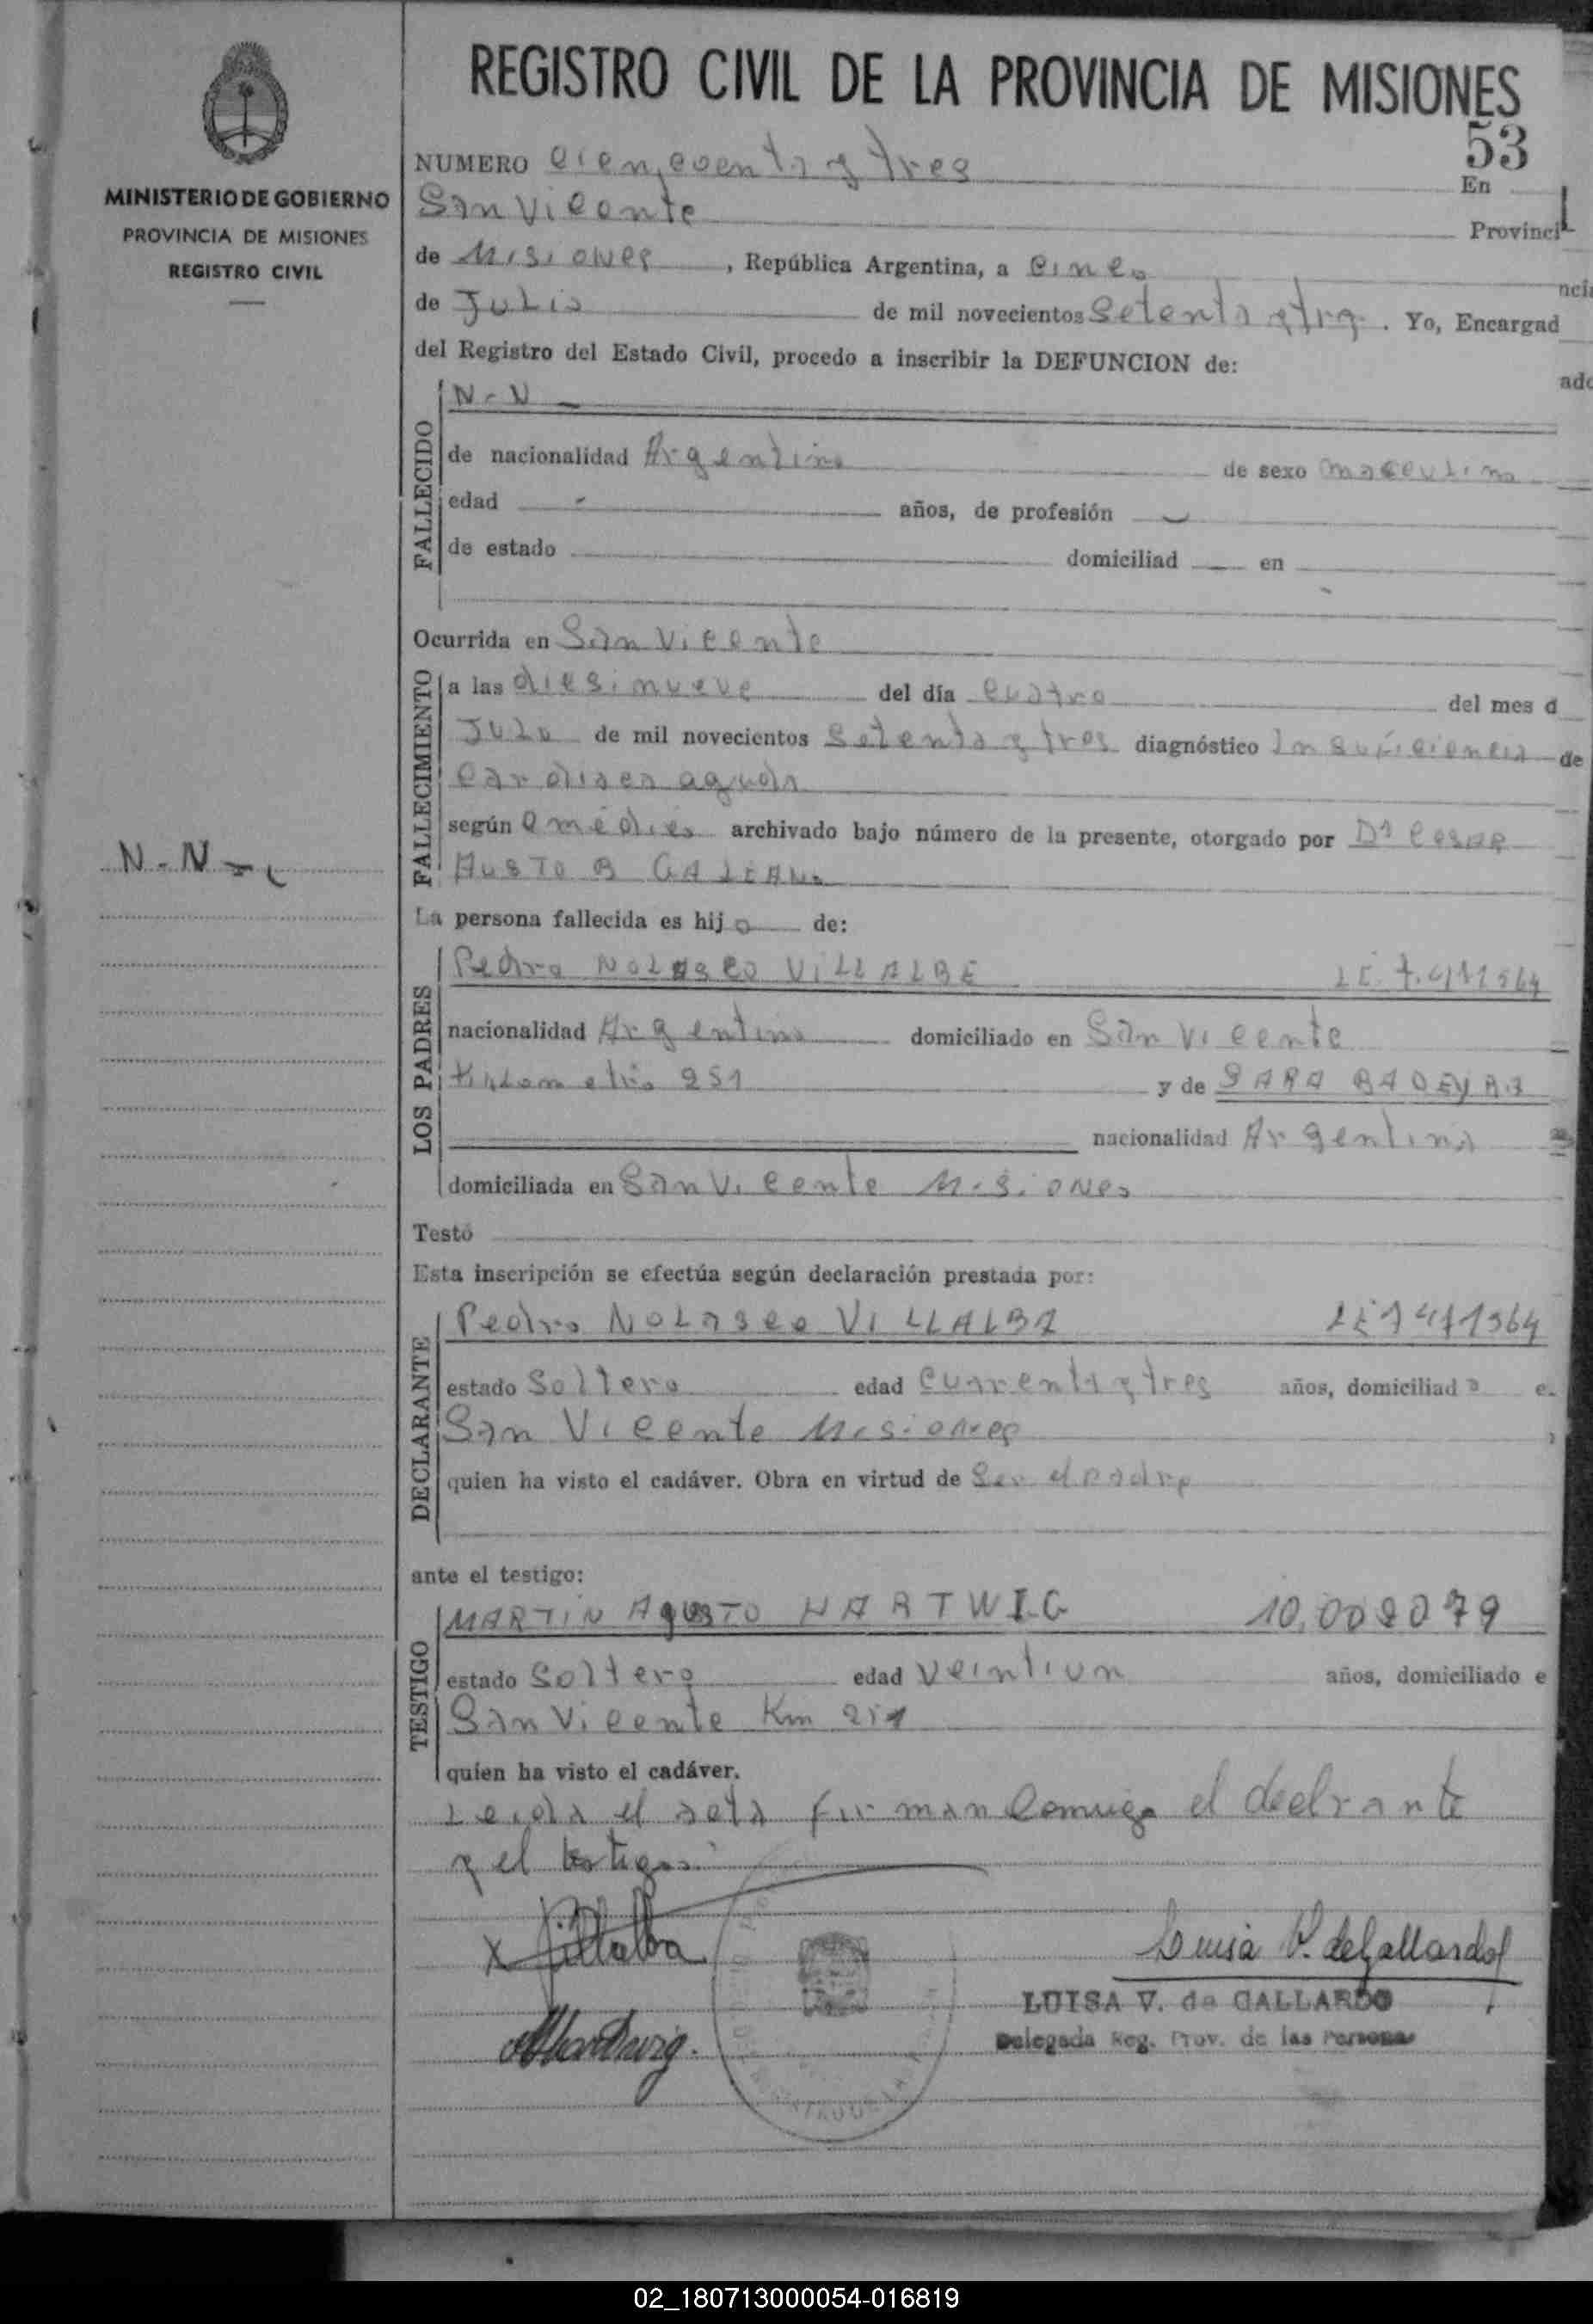 REGISTRO CIVIL DE LA PROVINCIA DE MISIONES
53
MINISTERIO DE GOBIERNO
PROVINCIA DE MISIONES
REGISTRO CIVIL
NUMERO cincuenta y tres En
San Vicente Provinci
de Misiones, República Argentina, a cinco
de Julio de mil novecientos setenta y tres. Yo, Encargad
del Registro del Estado Civil, procedo a inscribir la DEFUNCION de:
FALLECIDO
N-N
de nacionalidad Argentino de sexo masculino
edad - años, de profesión
de estado domiciliad en
Ocurrida en San Vicente
FALLECIMIENTO
a las diesinueve del día cuatro del mes d
Julio de mil novecientos setenta y tres diagnóstico Insuficiencia
cardiaca aguda
según C médico archivado bajo número de la presente, otorgado por Dr Cesar
AUSTO B GALEANO
N-N
La persona fallecida es hijo de:
LOS PADRES
Pedro NOLASCO VILLALBA LE 7.411564
nacionalidad Argentino domiciliado en San Vicente
Kilometro 251 y de SARA
nacionalidad Argentina
domiciliada en San Vicente Misiones
Testó
Esta inscripción se efectúa según declaración prestada por:
DECLARANTE
Pedro NOLASCO VILLALBA LE 7411564
estado Soltero edad cuarenta y tres años, domiciliado e
San Vicente Misiones
quien ha visto el cadáver. Obra en virtud de Ser el padre
ante el testigo:
TESTIGO
MARTIN AGUSTO HARTWIG 10.008079
estado soltero edad veintiun años, domiciliado e
San Vicente Km 251
quien ha visto el cadáver.
Leida el acta firman conmigo el declrante
y el testigo:
Villalba
Luisa V. de Gallardo
MHartwig.
LUISA V. de GALLARDO
Delegada Reg. Prov. de las Personas
02_180713000054-016819